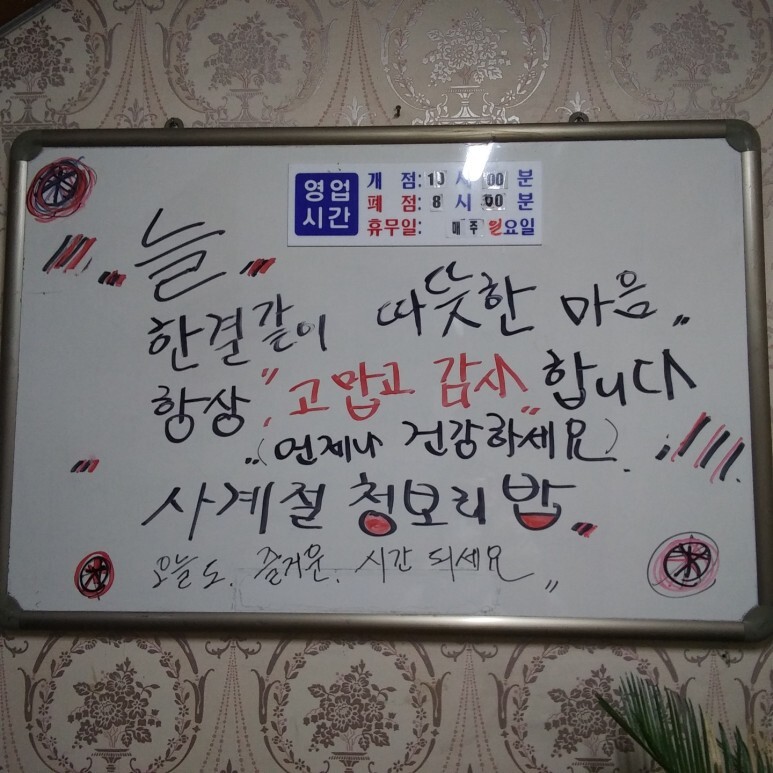 영업시간
개 점: 10 시 00 분
폐 점: 8 시 00 분
휴무일: 매주 일요일
늘
한결같이 따뜻한 마음
항상 "고맙고 감사" 합니다
(언제나 건강하세요)
사계절 청보리밥
오늘도. 즐거운. 시간 되세요